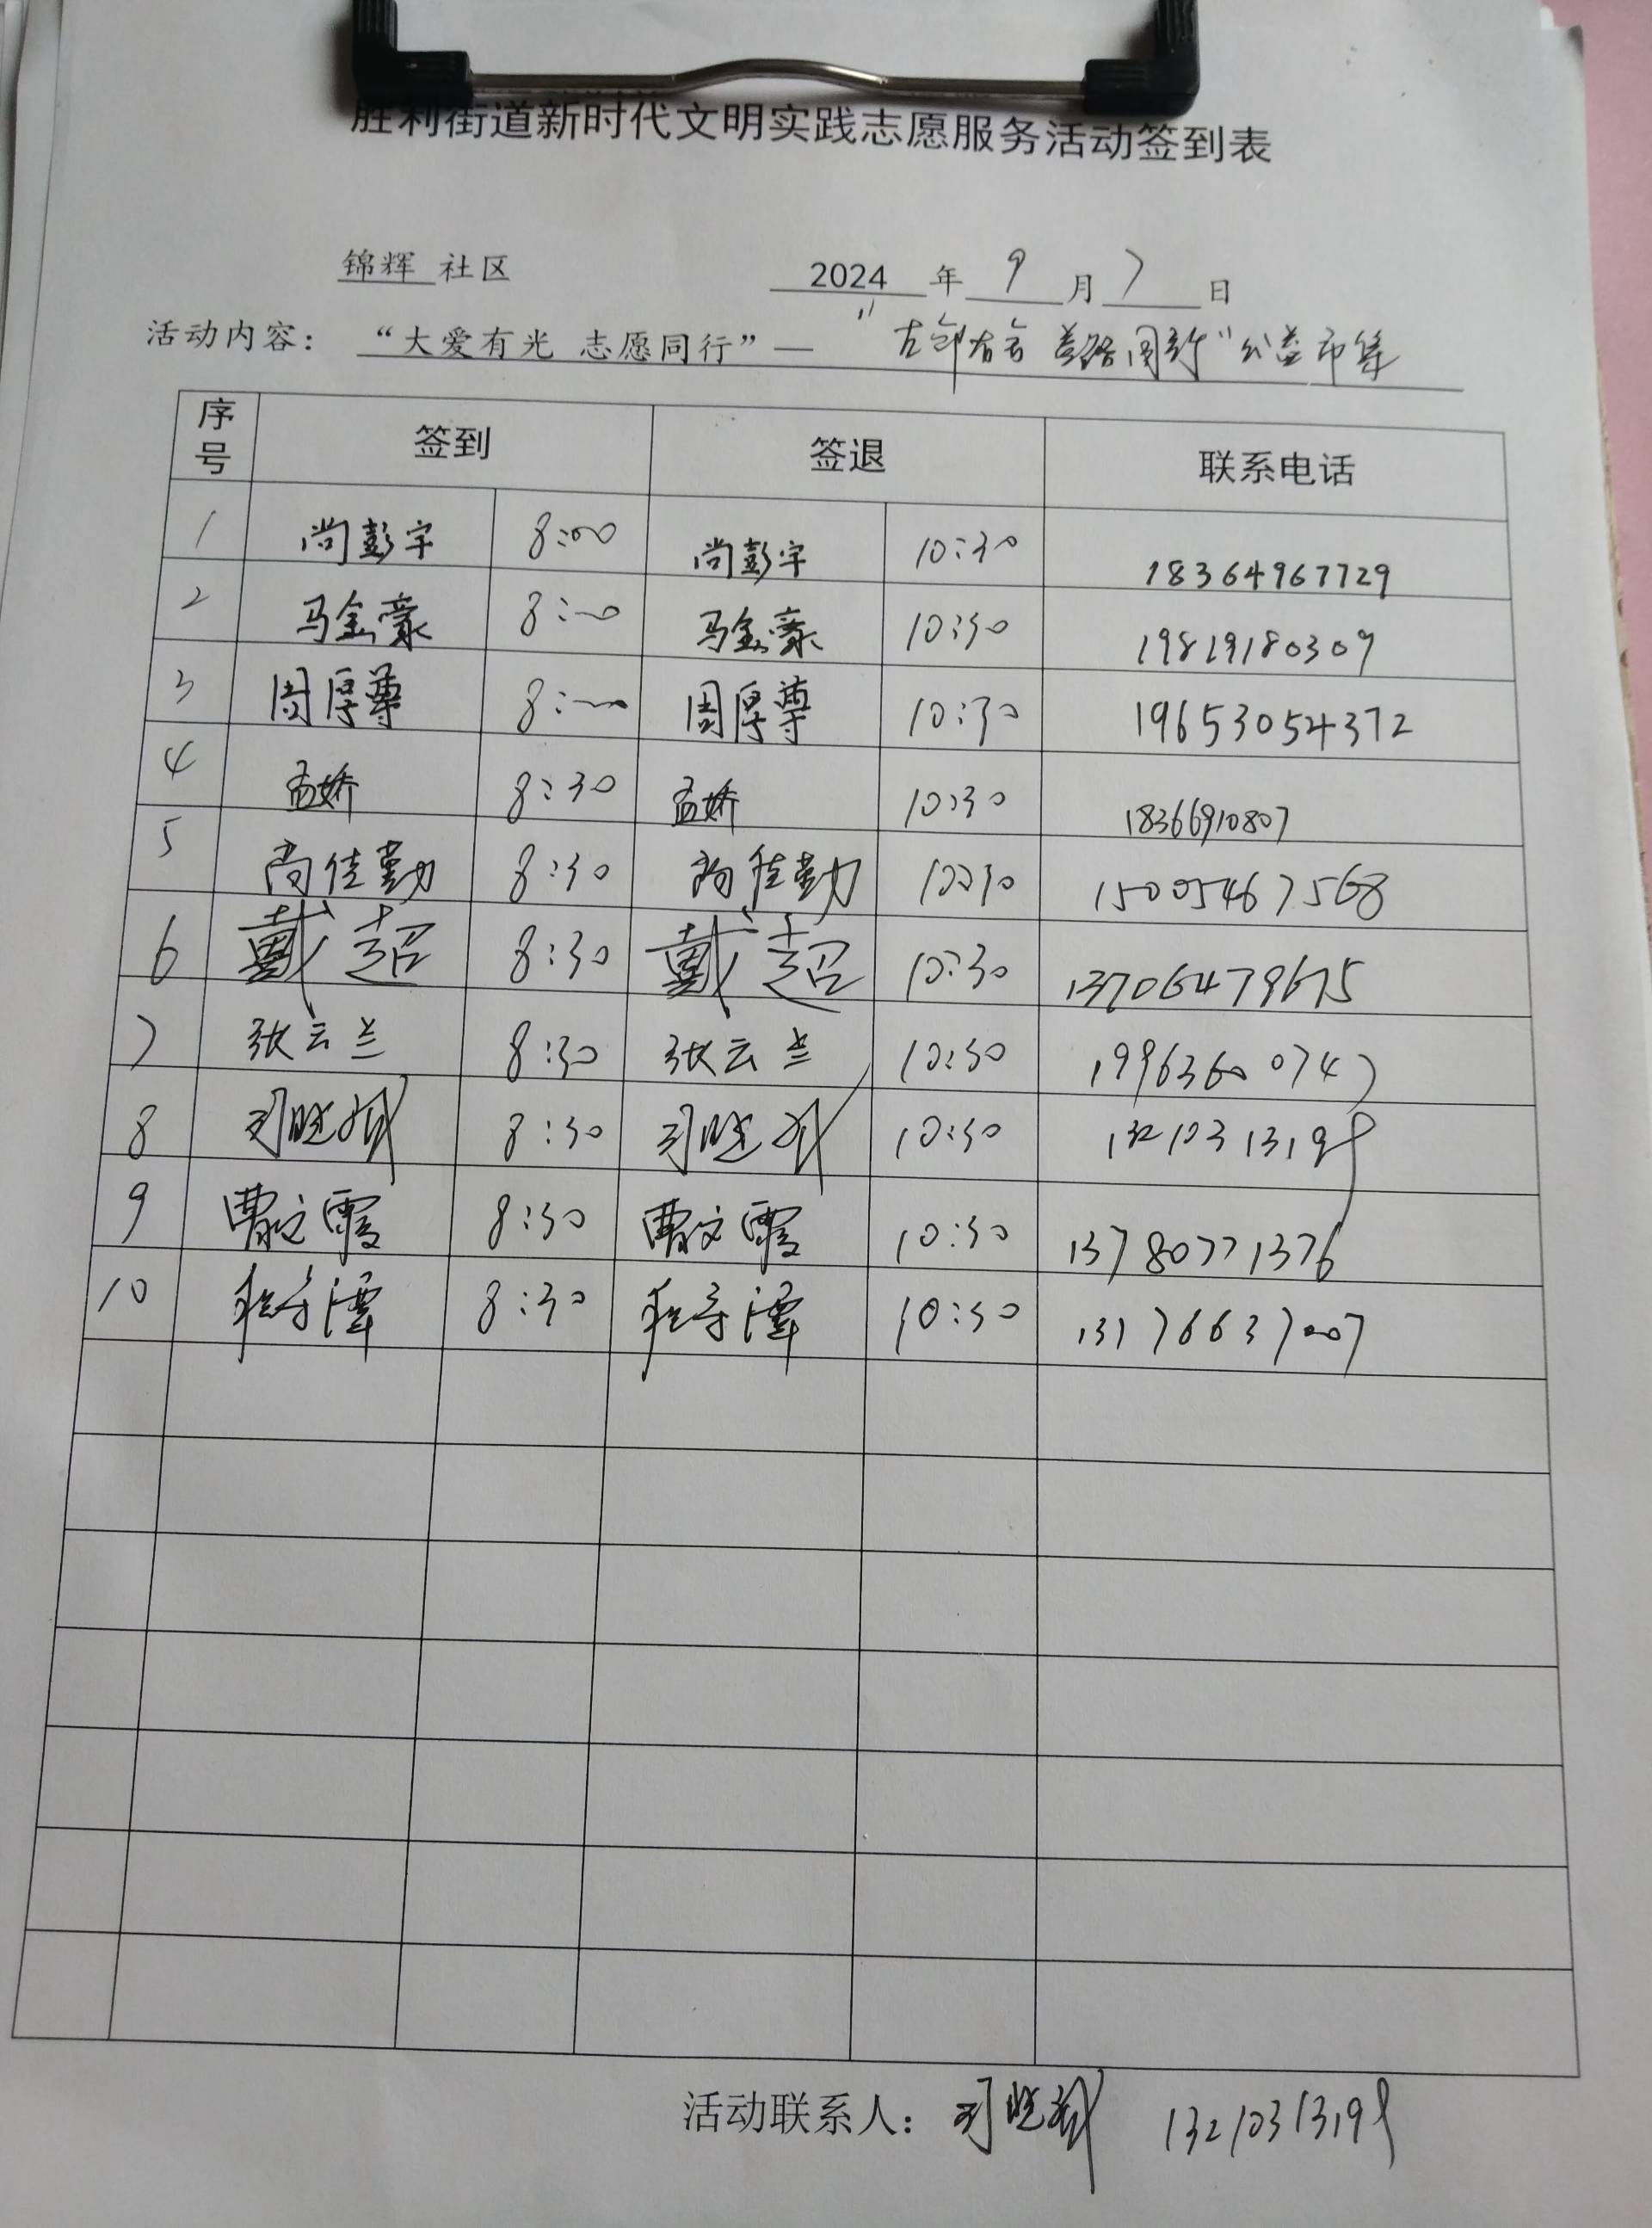 胜利街道新时代文明实践志愿服务活动签到表
锦辉 社区 2024 年 9 月 7 日
活动内容： “大爱有光 志愿同行”— “古邹有言 益路同行”公益市集
序号 签到 签退 联系电话
1 尚彭宇 8:00 尚彭宇 10:30 18364967729
2 马金豪 8:00 马金豪 10:30 19819180309
3 周厚尊 8:00 周厚尊 10:30 19653054372
4 孟娇 8:30 孟娇 10:30 18366910807
5 尚佳勤 8:30 尚佳勤 10:30 15005467568
6 戴超 8:30 戴超 10:30 13706479675
7 张云兰 8:30 张云兰 10:30 19963600747
8 8:30 10:30 13210313199
9 曹文霞 8:30 曹文霞 10:30 13780771376
10 程守潭 8:30 程守潭 10:30 13176637007
活动联系人： 13210313199